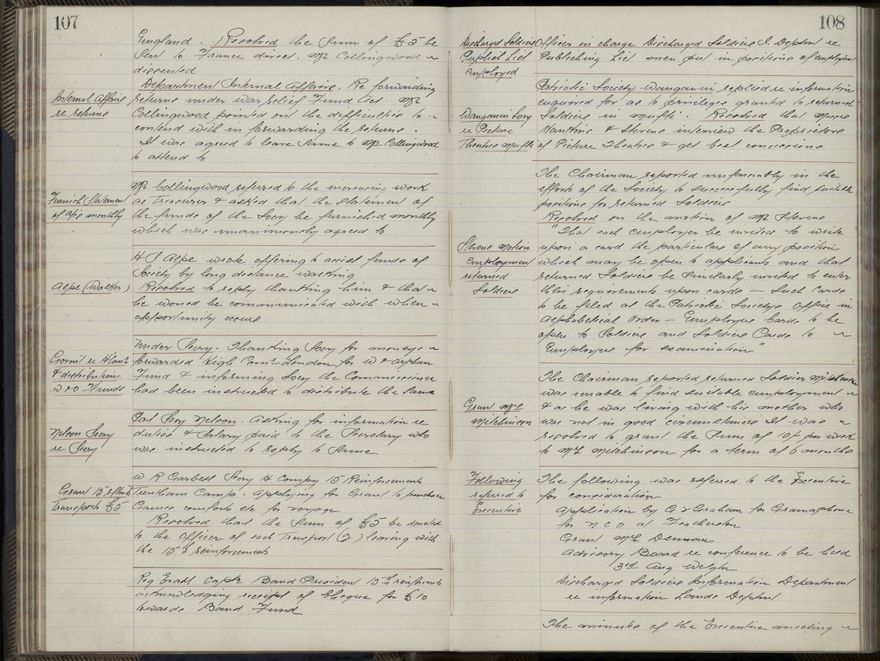 107
England. Resolved the Sum of £5 be
Sent to France direct. Mr Collingwood
dissented
Internal Affairs
re returns
Department Internal Affairs. Re forwarding
returns under War Relief Fund Act. Mr
Collingwood pointed out the difficulties to
contend with in forwarding the returns.
It was agreed to leave same to Mr Collingwood
to attend to
Furnish Statement
of a/cs monthly
Mr Collingwood referred to the increasing work
as Treasurer & asked that the Statement of
the funds of the Socy be furnished monthly
which was unanimously agreed to
Alpe (Walker)
H J Alpe wrote offering to assist funds of
Society by long distance walking
Resolved to reply thanking him & that
he would be communicated with when
opportunity occurs
& distribution
W & O Funds
Under Secy. Thanking Socy for moneys
forwarded High Comr London for W & Orphan
Fund & informing Socy the Commissioner
had been instructed to distribute the same
Nelson Socy
re Secy
Pat Socy Nelson. Asking for information re
duties & Salary paid to the Secretary who
was instructed to reply to same
Grant 15 Rfmts
transports £5
W R Corbett Secy H Compy 15 Reinforcements
Trentham Camp. Applying for Grant to purchase
Games comforts etc for voyage
Resolved that the Sum of £5 be donated
to the Officer of each Transport (2) leaving with
the 15th reinforcements
Reg Capt Band President 15th reinfmts
acknowledging receipt of Cheque for £10
towards Band Fund
108
Discharged Soldiers
Publish List
employed
Officer in charge Discharged Soldiers I Deptmt re
Publishing List men put in positions of employmt
Wanganui Socy
re Picture
Theatres Mufti
Patriotic Society Wanganui replied re information
enquired for as to privileges granted to returned
Soldiers in mufti. Resolved that Messrs
& Stevens interview the Proprietors
of Picture Theatres & get best concessions
The Chairman reported unfavorably in the
efforts of the Society to successfully find suitable
positions for returned Soldiers
Stevens Motion
Employment
returned
Soldiers
Resolved on the motion of Mr Stevens
"That each employer be invited to write
upon a card the particulars of any position
which may be open to applicants and that
returned Soldiers be similarly invited to enter
their requirements upon cards – Such Cards
to be filed at the Patriotic Societys Office in
Alphabetical order – Employers Cards to be
open to Soldiers and Soldiers Cards to
Employers for examination"
Grant Mr
Mitchinson
The Chairman reported returned Soldier Mitchinson
was unable to find suitable employment
& as he was living with his mother who
was not in good circumstances It was
resolved to grant the Sum of 10/- per week
to Mr Mitchinson for a term of 6 months
Following
referred to
Executive
The following was referred to the Executive
for consideration
Application by G V Graham for Gramophone
for N C O at Featherston
Grant Mr Denman
Advisory Board re conference to be held
3rd Aug Welgtn
Discharged Soldiers Information Department
re information Lands Deptmt
The minutes of the Executive meeting